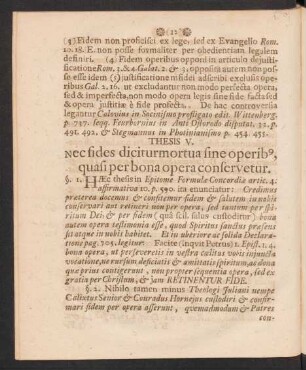 (12)
(3) Fidem non proficisci ex lege, sed ex Evangelio Rom.
10. 18. E. non posse formaliter per obedientiam legalem
definiri. (4) Fidem operibus opponi in articulo dejusti-
ficatione Rom. 3. & 4. Galat. 2. & 3. oppositum autem non pos-
se esse idem (5) justificationem fidei adscribi exclusis ope-
ribus Gal. 2. 16. ut excludantur non modo perfecta opera,
sed & imperfecta, non modo opera legis sine fide facta sed
& opera justitiæ è fide profecta. De hac controversia
legantur Calovius in Socinismo profligato edit. Wittenberg.
p. 737. seqq. Feurbornius in Anti Ostorodo disputat. 32. p.
491. 492. & Stegmannus in Photinianismo p. 454. 455.
THESIS V.
Nec fides dicitur mortua sine operib9,
quasi per bona opera conservetur.
§. 1. HÆc thesis in Epitome Formulæ Concordiæ artic. 4.
affirmativa 10. p. 590. ita enunciatur: Credimus
præterea docemus & confitemur fidem & salutem in nobis
conservari aut retineri non per opera, sed tantum per Spi-
ritum Dei, & per fidem (quâ scil. salus custoditur) bona
autem opera testimonia esse, quod Spiritus sanctus præsens
sit atque in nobis habitet. Et in uberiore ac solida Declara-
tione pag. 705. legitur: Facite (inquit Petrus) 2. Epist. 1. 4.
bona opera, ut perseveretis in vestra cœlitus vobis injuncta
vocatione, ne rursum deficiatis & amittatis spiritum, ac dona
quæ prius contigerunt, non propter sequentia opera, sed ex
gratia per Christum, & jam RETINENTUR FIDE.
§. 2. Nihilo tamen minus Theologi Juliani nempe
Calixtus Senior & Conradus Hornejus custodiri & conser-
mari fidem per opera asserunt, quemadmodum & Patres
con-